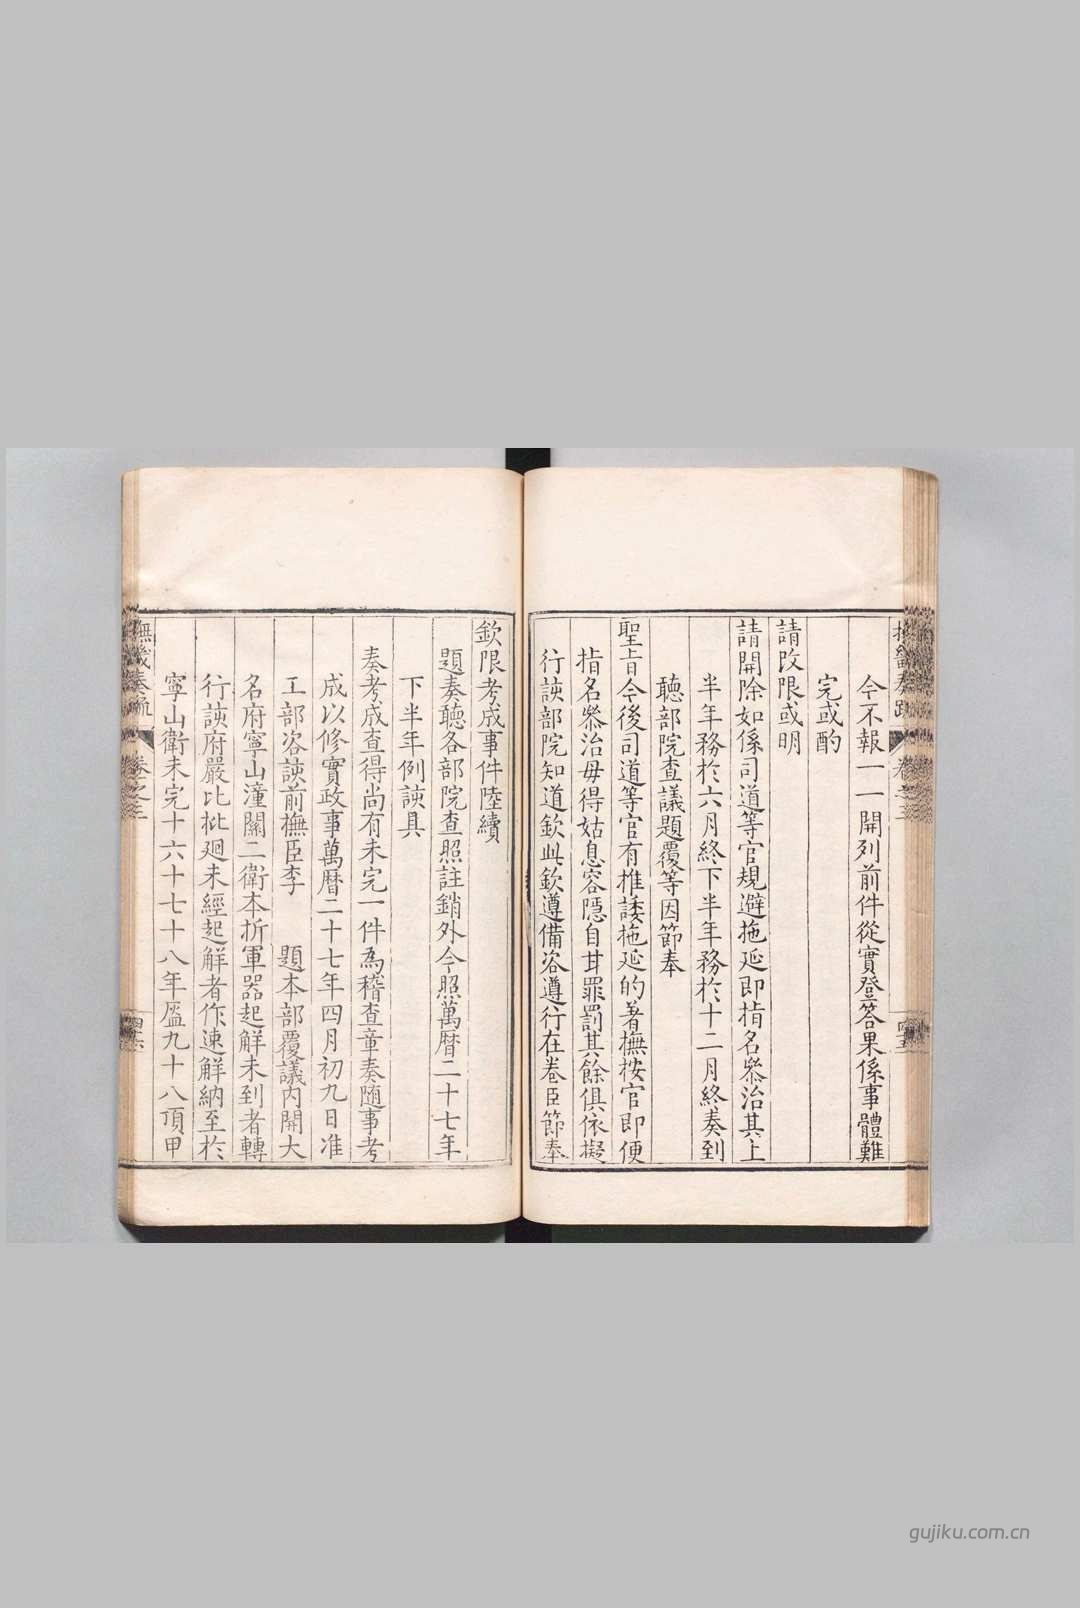 今不報一一開列前件從實登答果係事體難
完或酌
請改限或明
請開除如係司道等官規避拖延即指名叅治其上
半年務於六月終下半年務於十二月終奏到
聽部院查議題覆等因節奉
聖旨今後司道等官有推諉拖延的著撫按官即便
指名叅治毋得姑息容隱自甘罪罰其餘俱依擬
行該部院知道欽此欽遵備咨遵行在卷臣節奉
欽限考成事件陸續
題奏聽各部院查照註銷外今照萬曆二十七年
下半年例該具
奏考成查得尚有未完一件為稽查章奏隨事考
成以修實政事萬曆二十七年四月初九日准
工部咨該前撫臣李 題本部覆議內開大
名府寧山潼關二衛本折軍器起解未到者轉
行該府嚴比批廻未經起解者作速解納至於
寧山衛未完十六十七十八年盔九十八頂甲
撫畿奏疏 卷之三 四十六
gujiku.com.cn